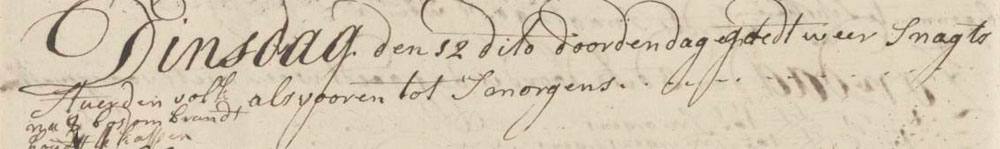 Dinsdag den 12 dito doordendag goedt weer Snagts
alsvooren tot Smorgens
Stuerden volk
om brandt